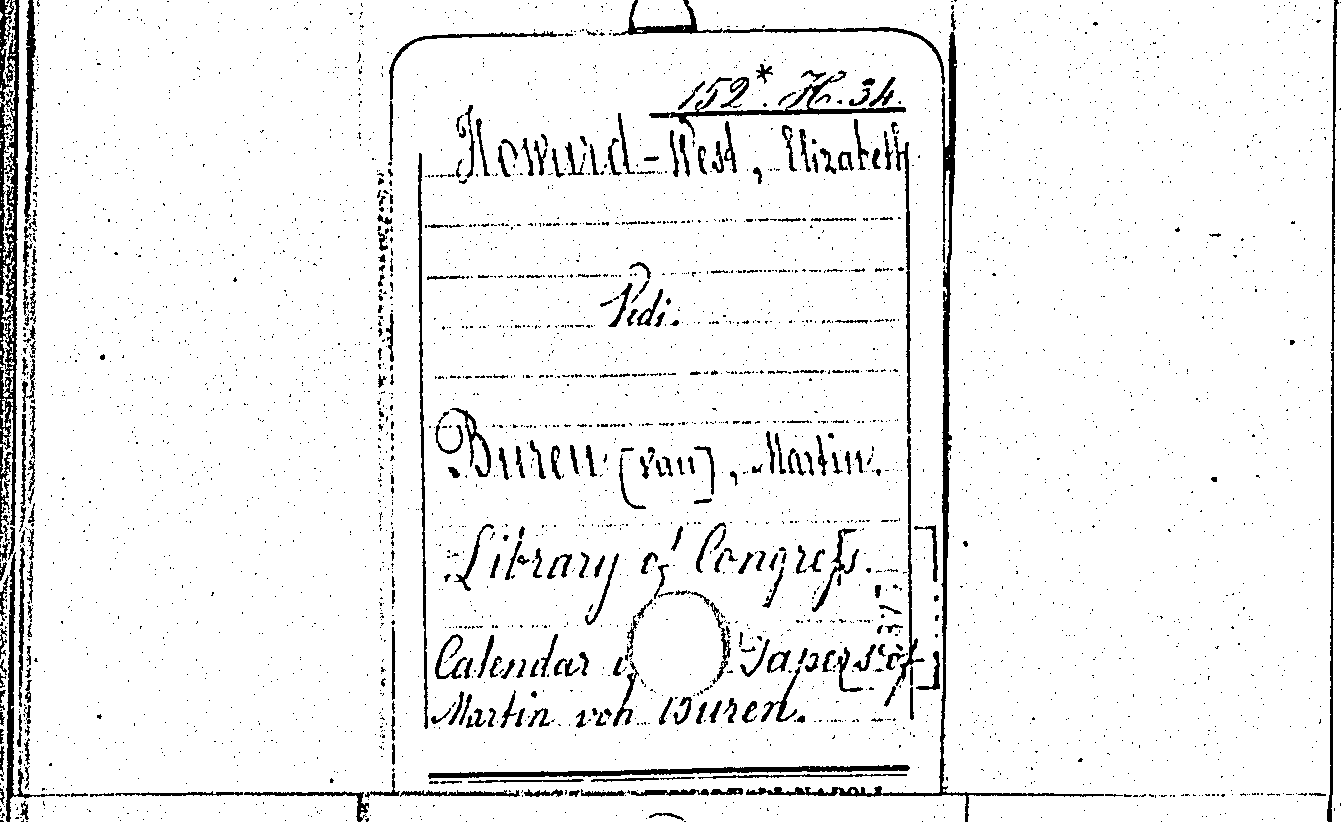 152*. H. 34.
Howard-West, Elizabeth
Vedi.
Buren [van], Martin.
Library of Congress.
Calendar Papers of
Martin von Buren.